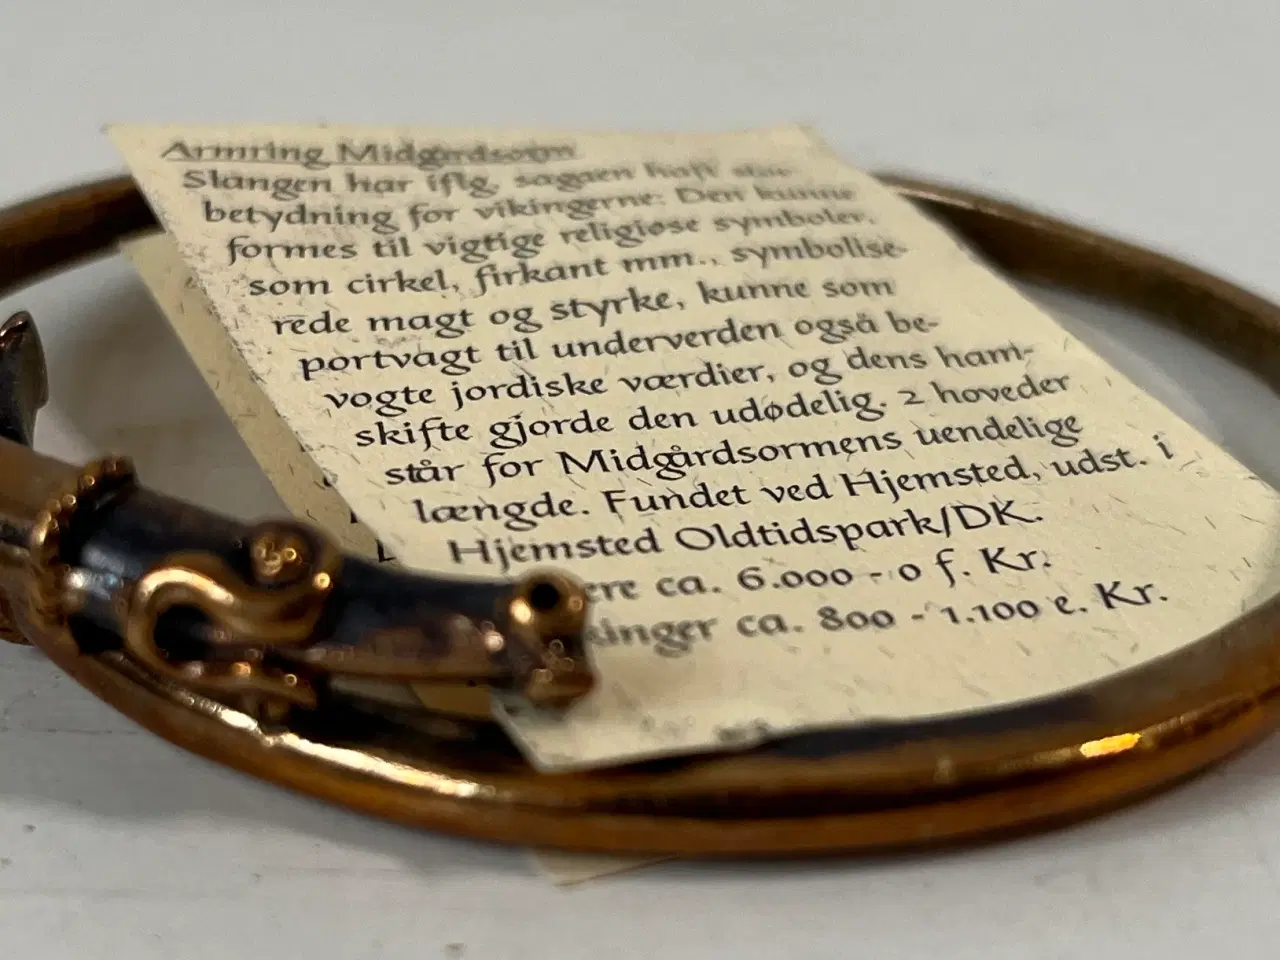 Armring Midgårdsorm
Slangen har iflg. sagaen haft stor
betydning for vikingerne: Den kunne
formes til vigtige religiøse symboler,
som cirkel, firkant mm., symbolise-
rede magt og styrke, kunne som
portvagt til underverden også be-
vogte jordiske værdier, og dens ham-
skifte gjorde den udødelig. 2 hoveder
står for Midgårdsormens uendelige
længde. Fundet ved Hjemsted, udst. i
Hjemsted Oldtidspark/DK.
ere ca. 6.000 - 0 f. Kr.
inger ca. 800 - 1.100 e. Kr.